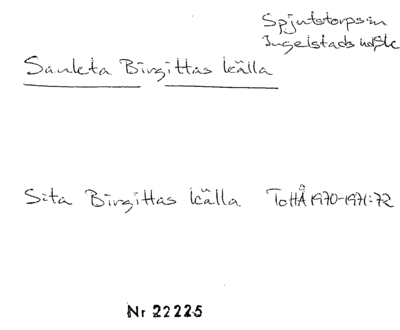 Spjutstorps sn
Ingelstads hd Sk
Sankta Birgittas källa
Sita Birgittas källa ToHÅ 1970-1971:72
Nr 22225